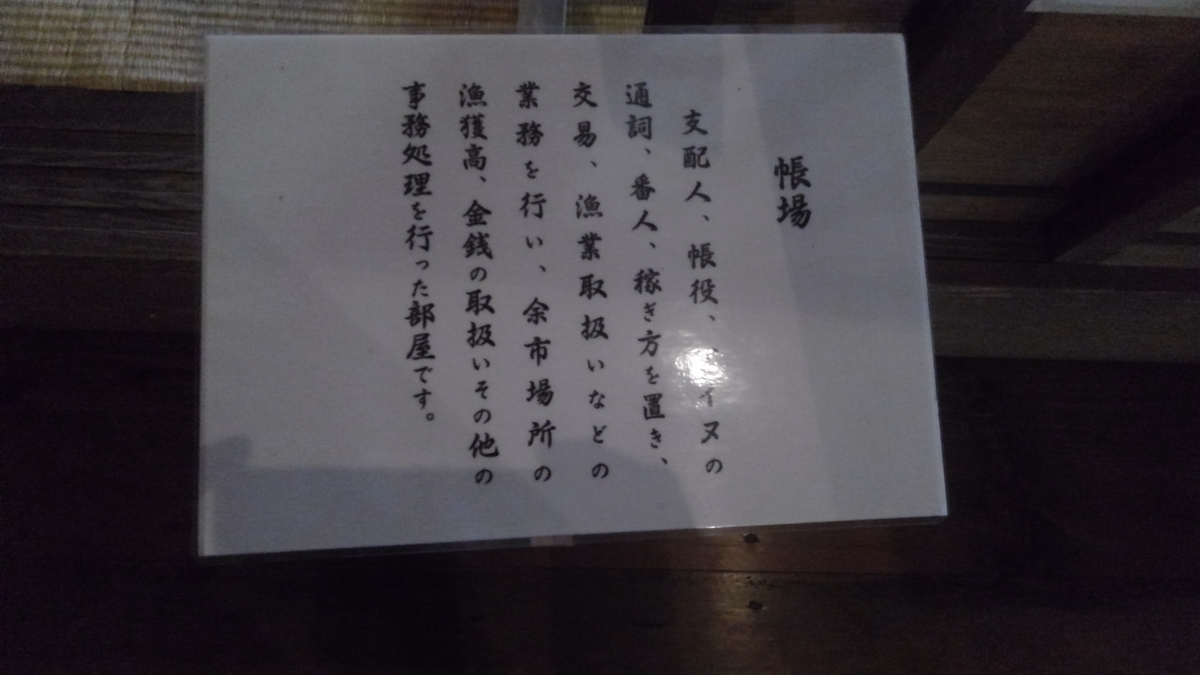 帳場
支配人、帳役、イヌの
通詞、番人、稼ぎ方を置き、
交易、漁業取扱いなどの
業務を行い、余市場所の
漁獲高、金銭の取扱いその他の
事務処理を行った部屋です。